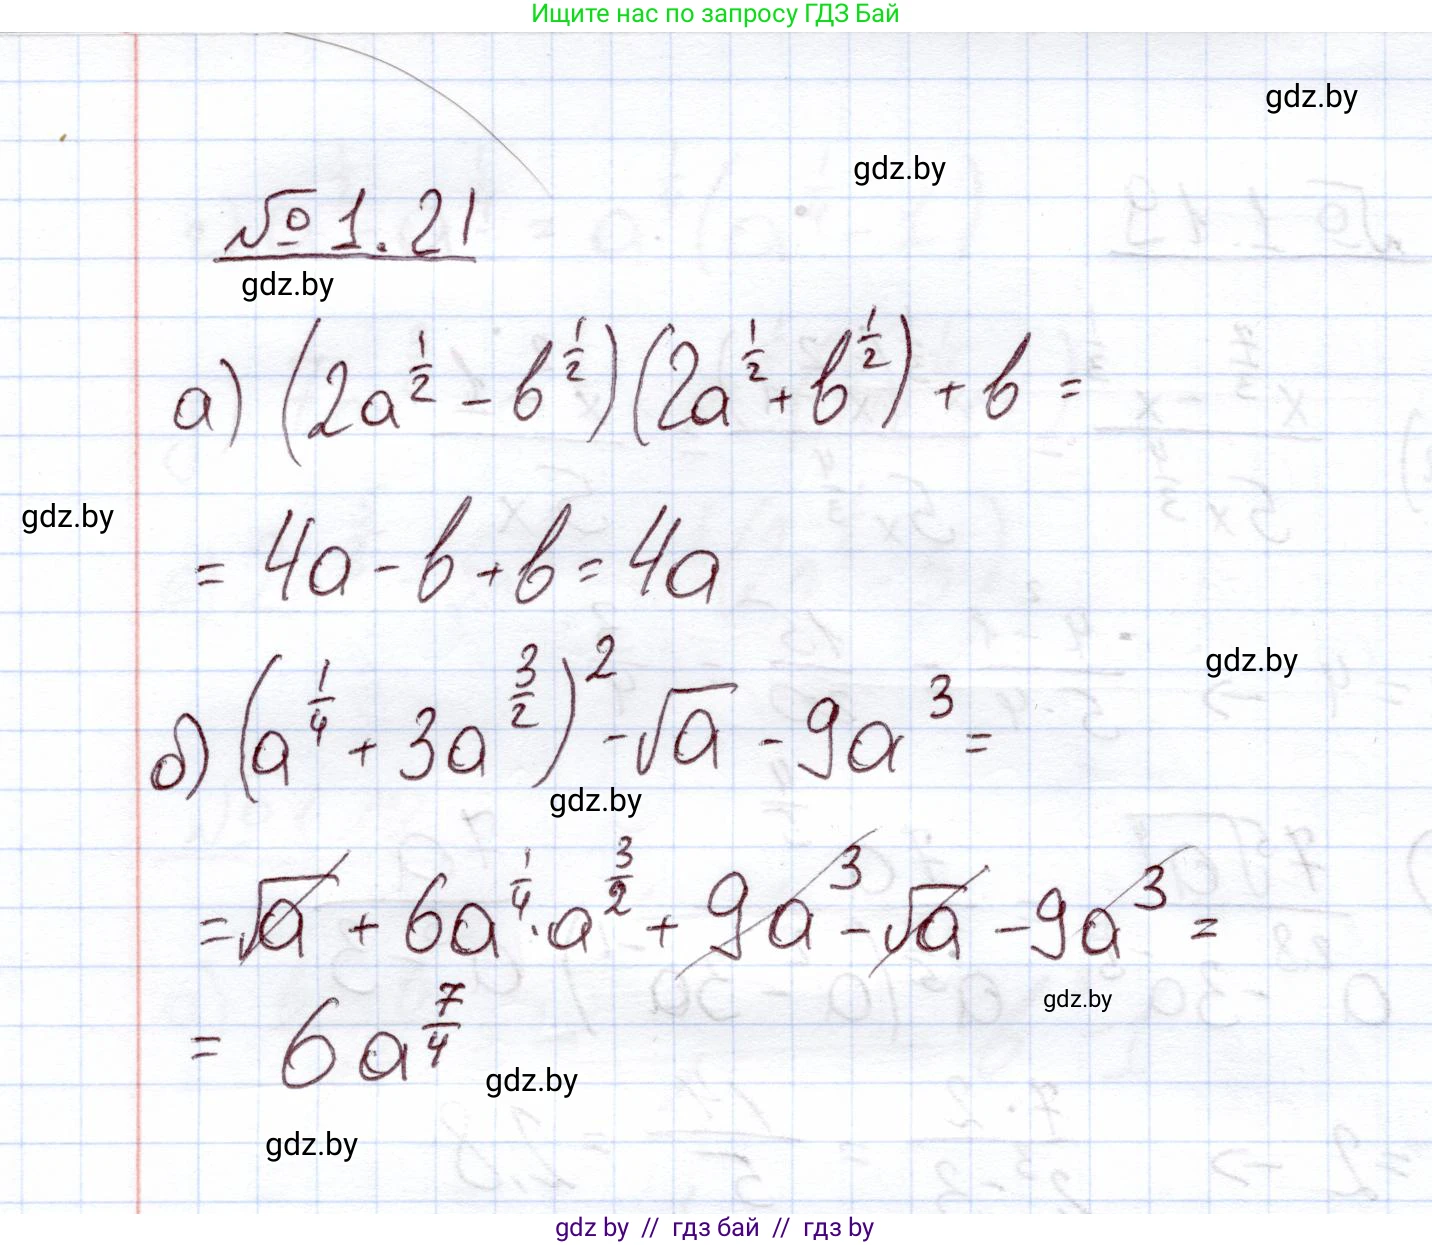 Ищите нас по запросу ГДЗ Бай
gdz.by
gdz.by
№ 1.21
gdz.by
а) (2a^{1/2} - b^{1/2})(2a^{1/2} + b^{1/2}) + b =
gdz.by
= 4a - b + b = 4a
gdz.by
б) (a^{1/4} + 3a^{3/2})^2 - √a - 9a^3 =
gdz.by
= √a + 6a^{1/4} · a^{3/2} + 9a^3 - √a - 9a^3 =
gdz.by
= 6a^{7/4}
gdz.by
gdz.by
gdz by // гдз бай // гдз by